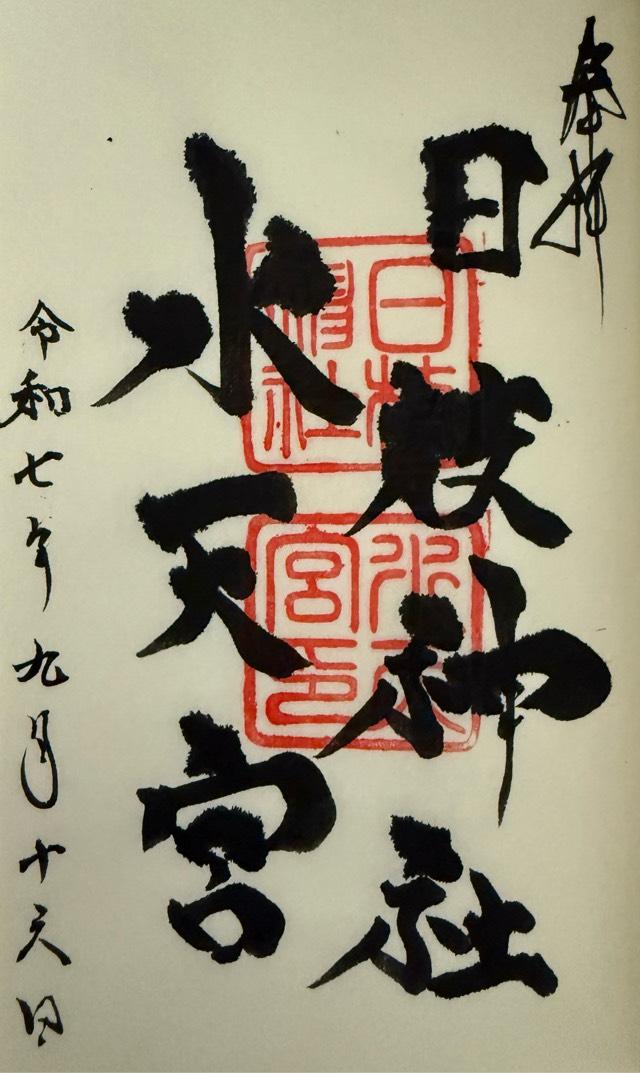 奉拝
日枝神社
水天宮
日枝神社
水天宮印
令和七年九月十六日